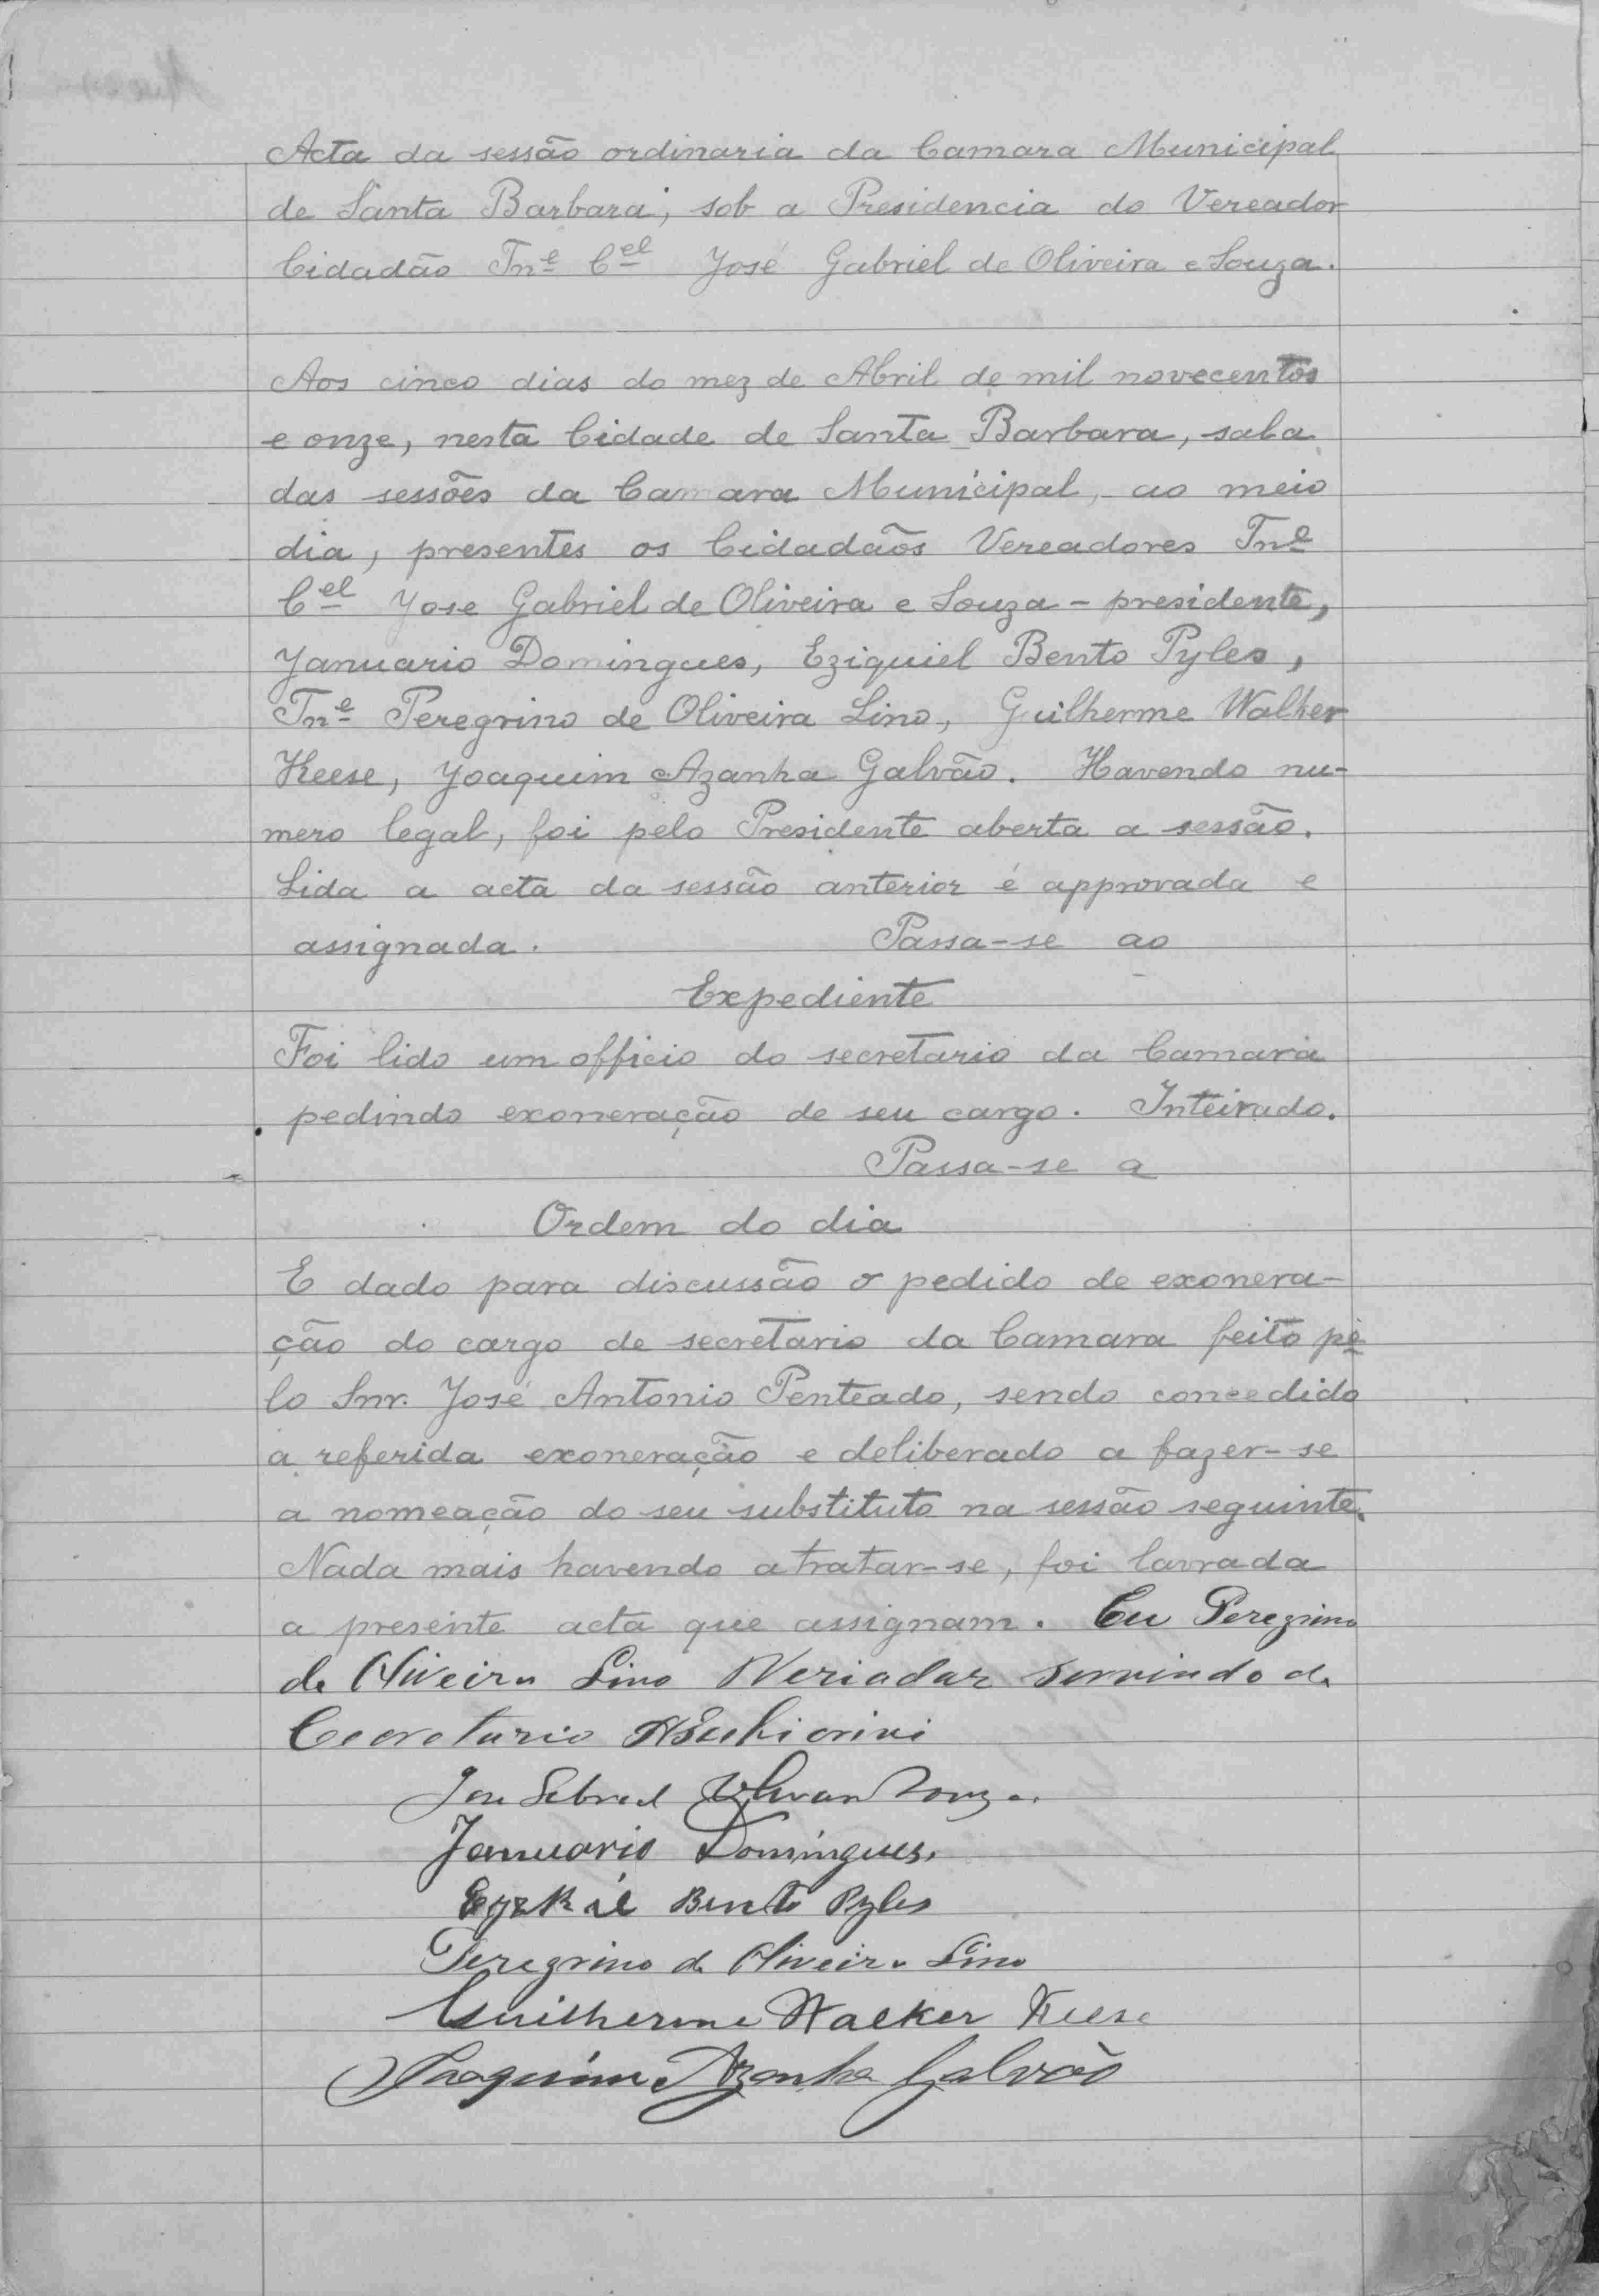 Acta da sessão ordinaria da Camara Municipal
de Santa Barbara, sob a Presidencia do Vereador
Cidadão Tn.e C.el José Gabriel de Oliveira e Souza.
Aos cinco dias do mez de Abril de mil novecentos
e onze, nesta Cidade de Santa Barbara, sala
das sessões da Camara Municipal, ao meio
dia, presentes os Cidadãos Vereadores Tn.e
C.el Jose Gabriel de Oliveira e Souza - presidente,
Januario Domingues, Eziquiel Bento Pyles,
Tn.e Peregrino de Oliveira Lino, Guilherme Walker
Keese, Joaquim Azanha Galvão. Havendo nu-
mero legal, foi pelo Presidente aberta a sessão.
Lida a acta da sessão anterior é approvada e
assignada. Passa-se ao
Expediente
Foi lido um officio do secretario da Camara
pedindo exoneração de seu cargo. Inteirado.
Passa-se a
Ordem do dia
E dado para discussão o pedido de exonera-
ção do cargo de secretario da Camara feito pe
lo Snr. José Antonio Penteado, sendo concedido
a referida exoneração e deliberado a fazer-se
a nomeação do seu substituto na sessão seguinte.
Nada mais havendo a tratar-se, foi lavrada
a presente acta que assignam. Eu Peregrino
de Oliveira Lino Veriador servindo de
Cecretario
Januario Domingues.
Bento Pyles
Peregrino de Oliveira Lino
Guilherme Walker Keese
Joaquim Azanha Galvão